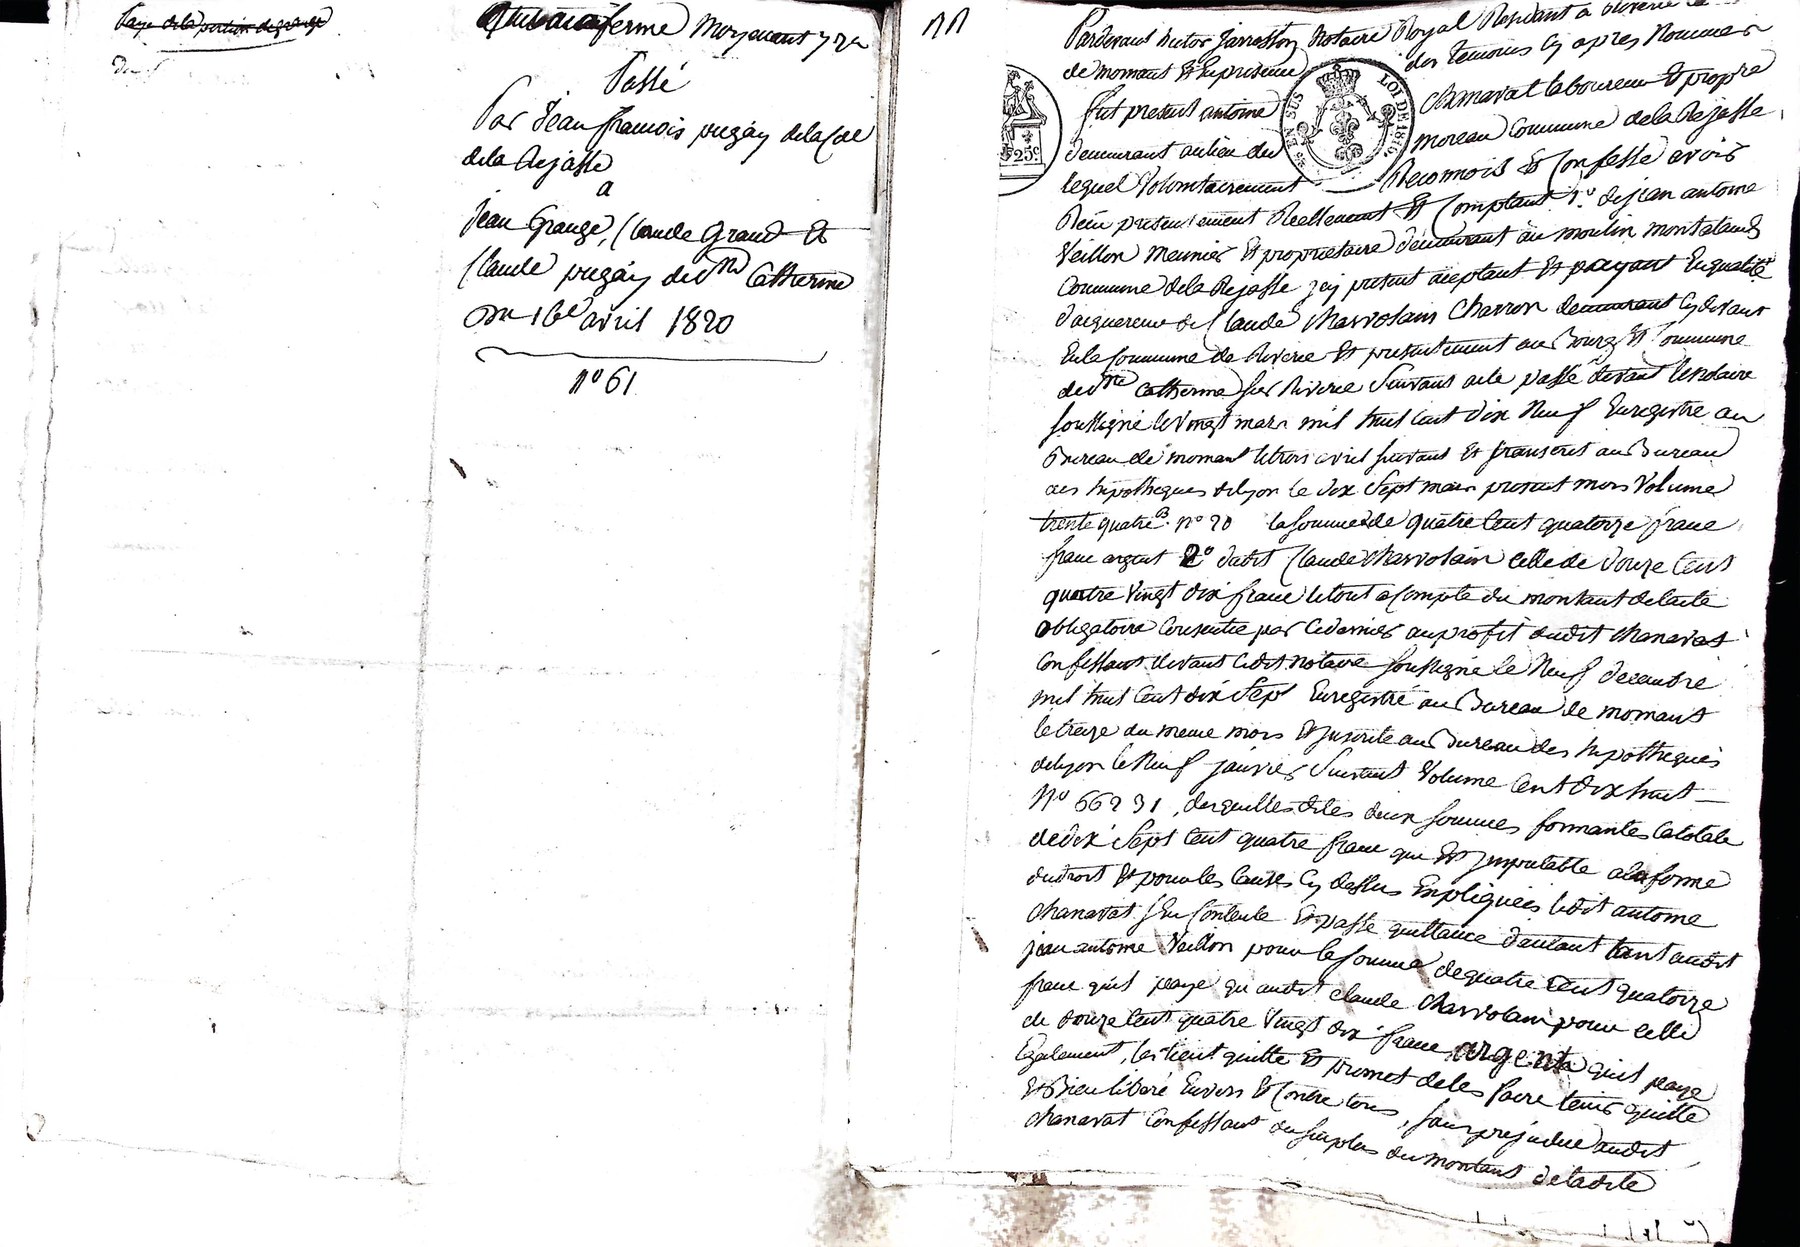 Paye de la portion de grange
Quittance ferme Moyenant 72 #
Passé
Par Jean françois pugéy de la Cote
de la Rejasse
a
Jean Grange, Claude Grand et
Claude pugéy de Ste Catherine
du 16e avril 1820
n° 61
Pardevant victor Jarrosson Notaire Royal Residant a Riverie
de mornant Et En presence des temoins Cy apres Nommés
fut present antoine Chanavat laboureur Et propre
demeurant au lieu du moreau Commune de la Rejasse,
lequel Volontairement Reconnois Et Confesse avoir
Reçu presentement Reellement Et Comptant 1.° de jean antoine
Veillon Meunier Et proprietaire demeurant au moulin montaland
Commune de la Rejasse jcy present aceptant Et payant En qualité
d'acquereur de Claude Charvolain Charron demeurant Cy devant
En la Commune de Riverie Et presentement au Bourg Et Commune
de Ste Catherine sur Riverie Suivant acte passé devant le Notaire
soussigné le Vingt mars mil huit cent dix Neuf Enregistré au
Bureau de mornant le trois avril suivant Et transcrit au Bureau
des hipotheques de lyon le dix Sept mars present mois Volume
trente quatre n° 20 la somme de quatre Cent quatorze franc
franc argent 2° dudit Claude Charvolain Celle de Douze Cent
quatre Vingt dix franc le tout a Compte du montant de lacte
obligatoire Consentie par Cedernier au profit dudit Chanavat
Confessant devant ledit notaire soussigné le Neuf decembre
mil huit Cent dix Sept Enregistré au Bureau de mornant
le treize du meme mois Et Inscrite au Bureau des hipotheques
de lyon le Neuf janvier Suivant Volume Cent dix huit
N° 66231, desquelles dites deux sommes formantes la totale
de dix Sept Cent quatre franc que Est Imputable a la forme
du droit Et pour les Causes Cy dessus Expliquées ledit antoine
Chanavat s'En Contente Et passe quittance d'autant tant audit
jean antoine Veillon pour la somme de quatre Cent quatorze
franc qu'il paye qu'audit Claude Charvolain pour Celle
de Douze Cent quatre Vingt dix franc argent qu'il paye
Egalement, les tient quitte Et promet de les faire tenir quitte
Et Bien libéré Envers Et Contre tous, sans prejudice audit
Chanavat Confessant du surplus du montant de ladite
E EN SUS
LOI DE 1816.
25c